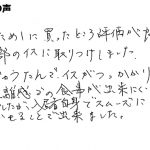 の声
ために買ったところ評価が良
部のイスに取りつけました。
じゅうたんで、イスがつっかかり
距離感での食事が出来にく
したが、入居者自身でスムーズに
かせることで出来ました。